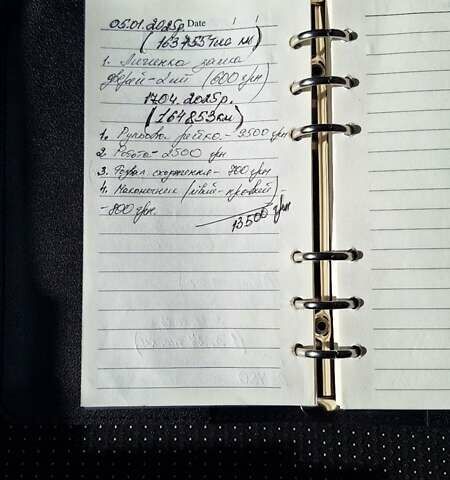 05.01.2025р Date / /
(163755 тис км)
1. Личинка замка
дверей - 2 шт (600 грн)
17.04.2025р.
(164853 км)
1. Рульова рейка - 9500 грн
2. Робота - 2500 грн
3. Розвал сходження - 700 грн
4. Наконечник (лівий-правий) -
- 800 грн
13500 грн